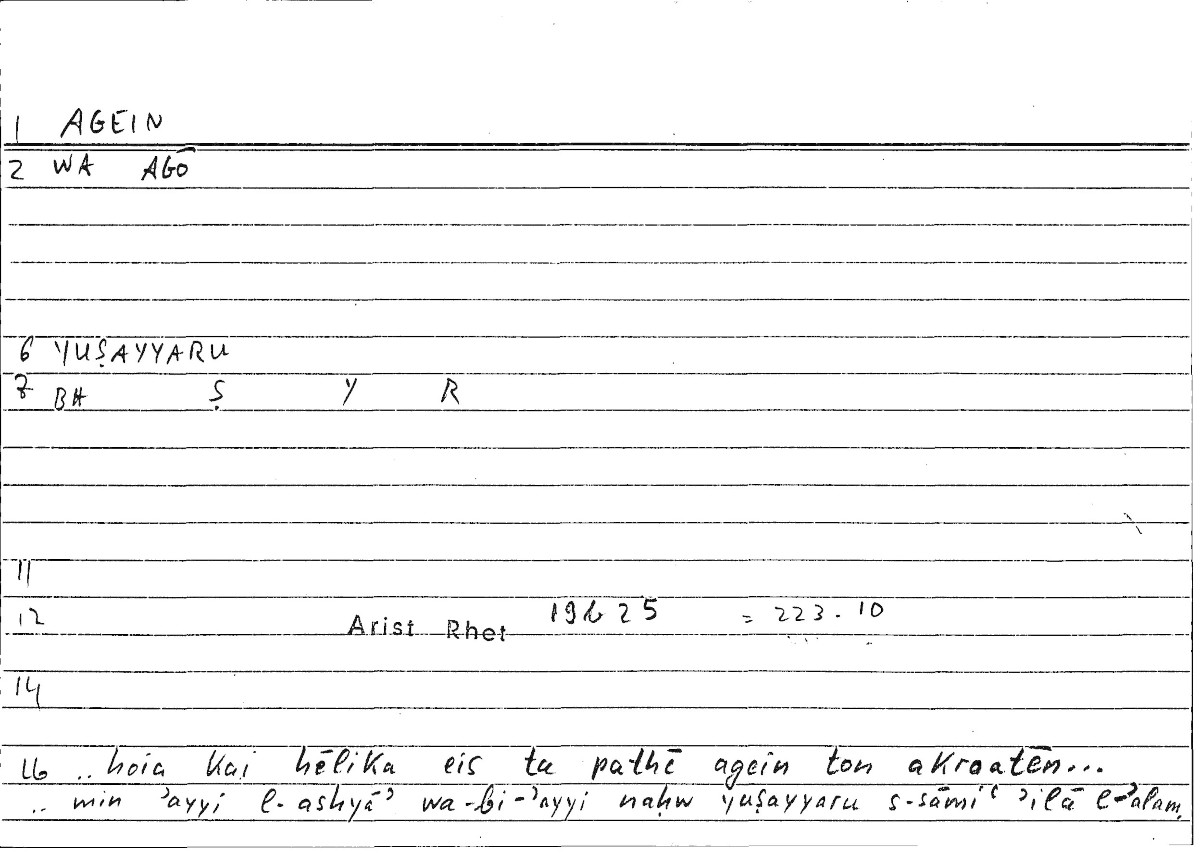 1 AGEIN
2 WA AGŌ
6 YUṢAYYARU
7 BH Ṣ Y R
11
12 Arist Rhet 19b25 = 223.10
14
16 ..hoia kai hēlika eis ta pathē agein ton akroatēn...
.. min ʾayyi l-ashyāʾ wa-bi-ʾayyi naḥw yuṣayyaru s-sāmiʿ ʾilā l-ʾalam,